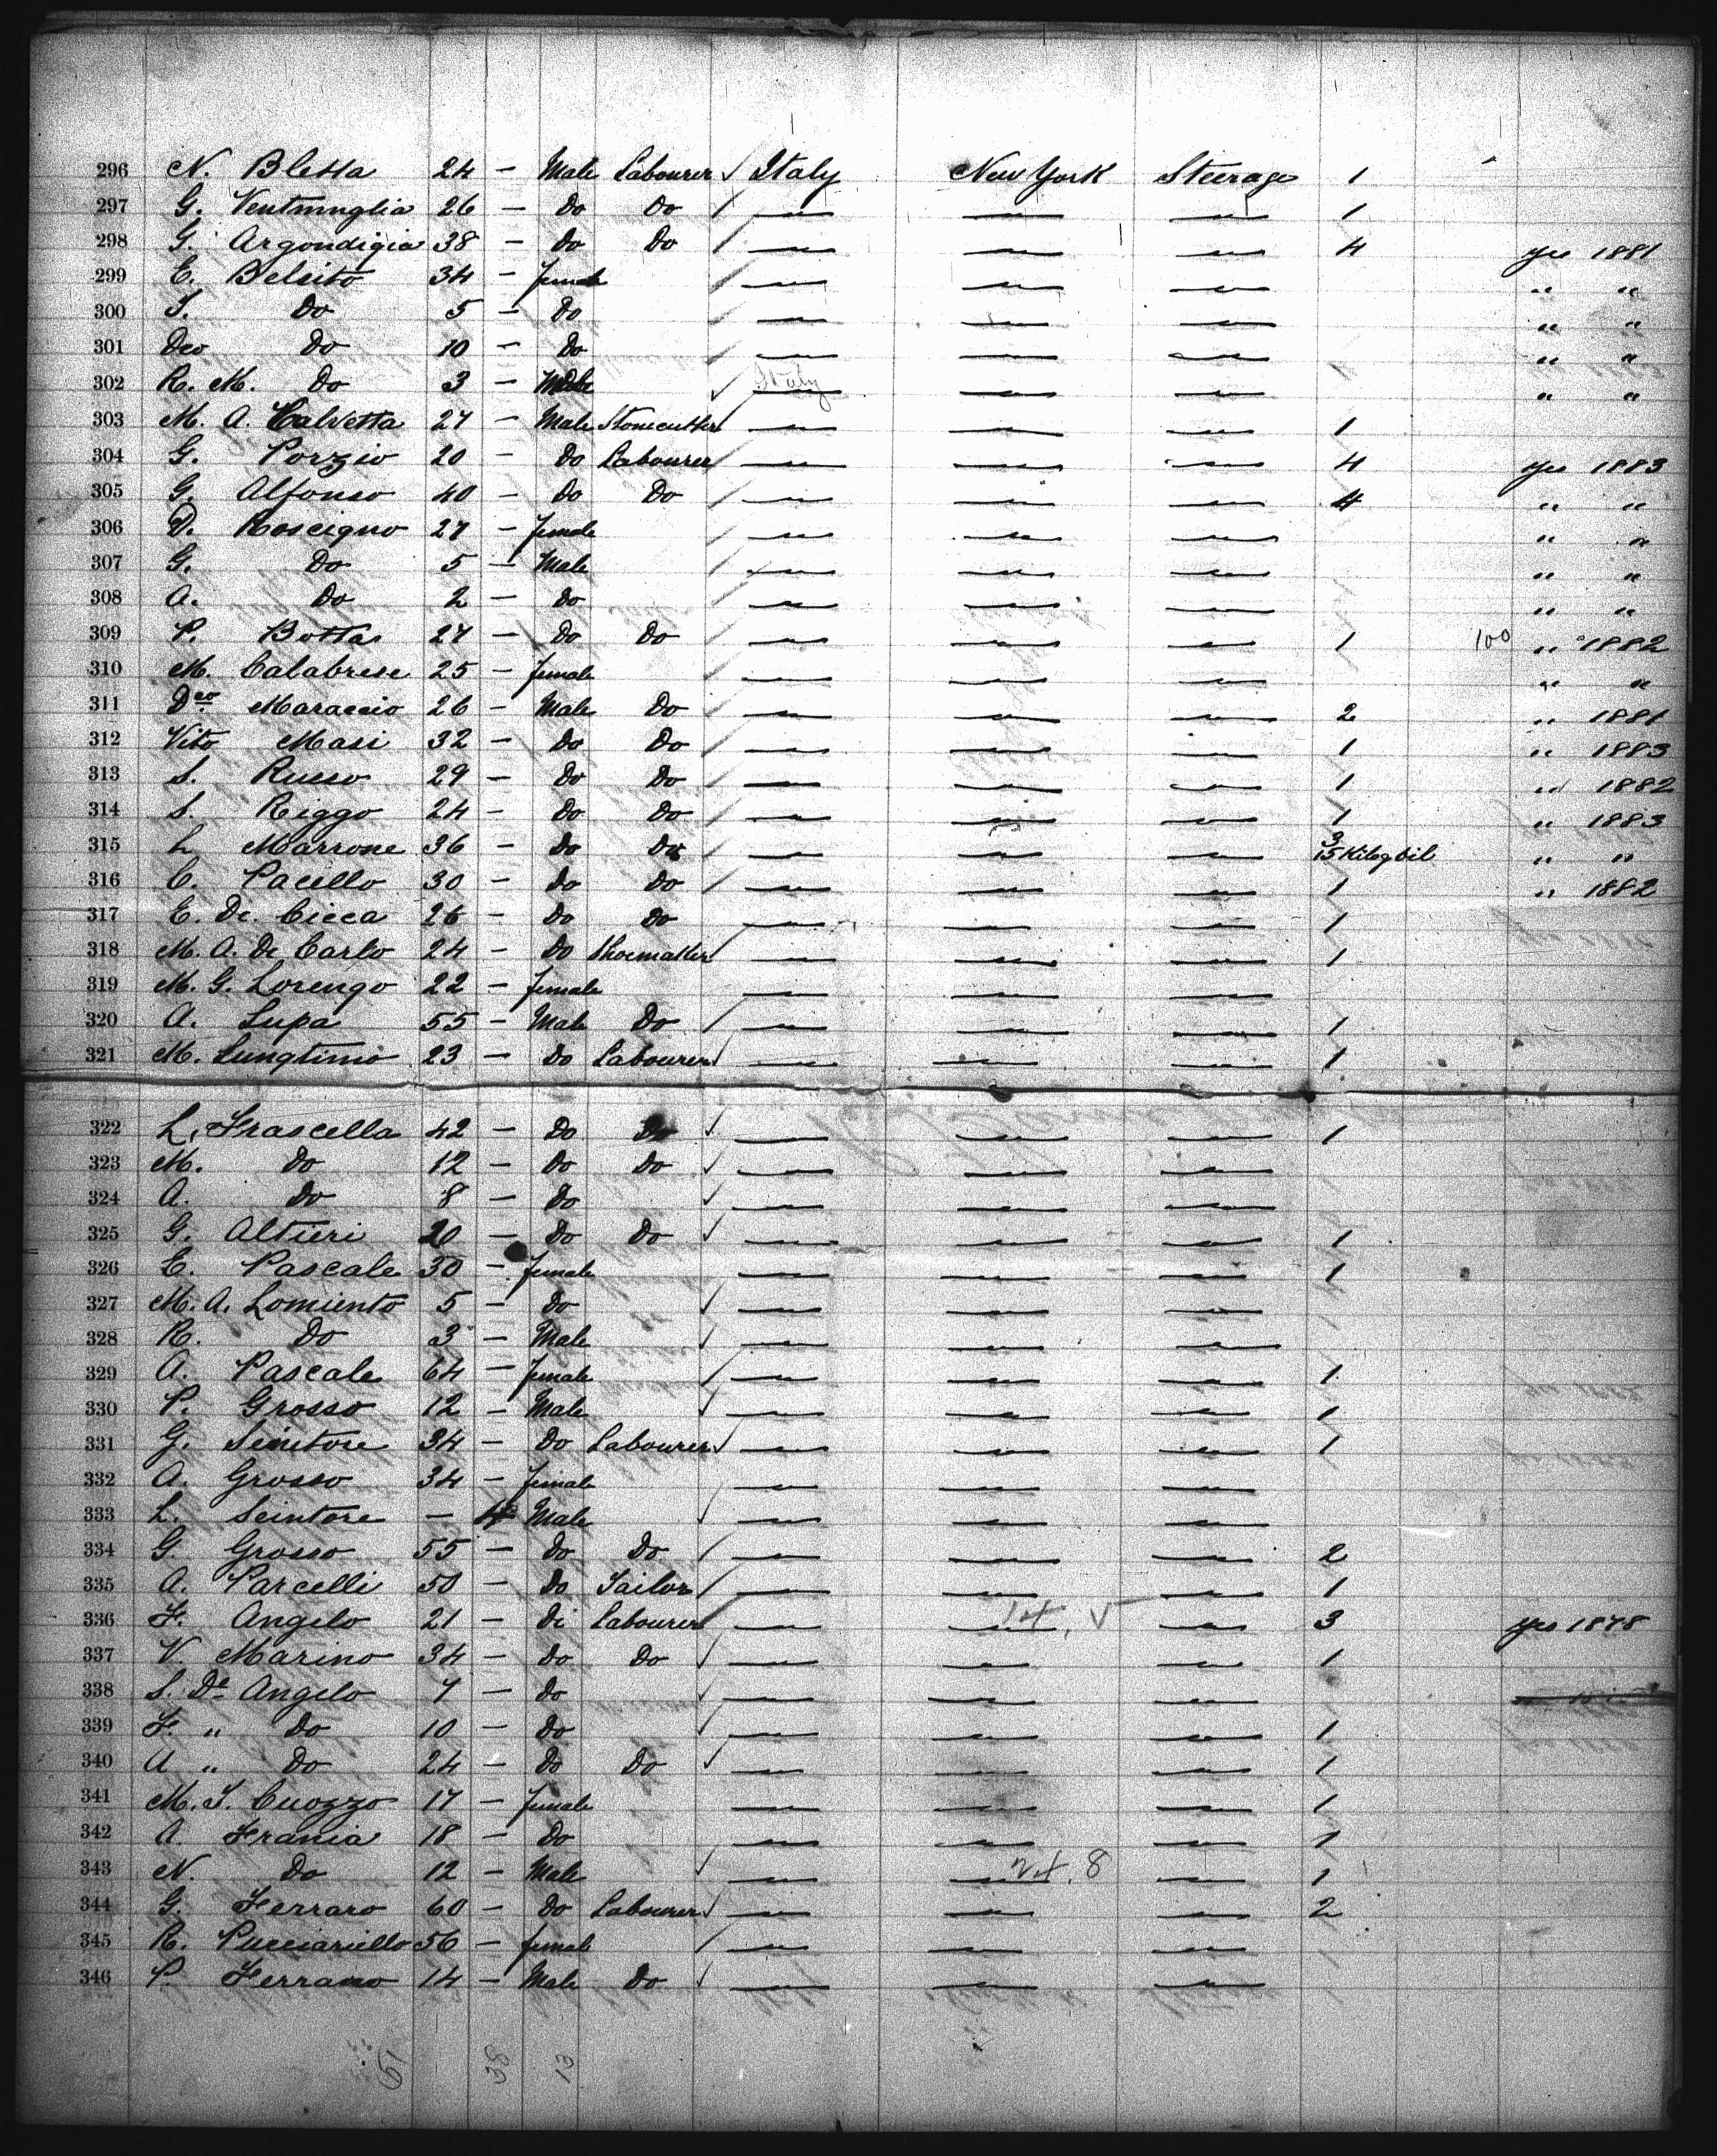 296 N. Bletta 24 — Male Labourer ✓ Italy New York Steerage 1
297 G. Ventmuglia 26 — Do Do / — — — 1
298 G. Argondigia 38 — Do Do / — — — 4 yes 1881
299 E. Belsito 34 — female / — — — " "
300 Do 5 — Do / — — — " "
301 Dco Do 10 — Do / — — — " "
302 R. M. Do 3 — Male ✓ Italy — — " "
303 M. A. Calvetta 27 — Male Stonecutter / — — — 1
304 G. Porzio 20 — Do Labourer / — — — 4 yes 1883
305 G. Alfonso 40 — Do Do / — — — 4 " "
306 D. Roscigno 27 — female / — — — " "
307 G. Do 5 — Male / — — — " "
308 A. Do 2 — Do / — — — " "
309 P. Botta 27 — Do Do / — — — 1 100 " 1882
310 M. Calabrese 25 — female / — — — " "
311 Dco Maraccio 26 — Male Do / — — — 2 " 1881
312 Vito Masi 32 — Do Do / — — — 1 " 1883
313 S. Russo 29 — Do Do / — — — 1 " 1882
314 S. Riggo 24 — Do Do / — — — 1 " 1883
315 L Marrone 36 — Do Do — — — 3 15 Kilog oil " "
316 C. Pacillo 30 — Do Do / — — — 1 " 1882
317 E. De. Cicca 26 — Do Do — — — 1
318 M. A. De Carlo 24 — Do Shoemaker / — — — 1
319 M. G. Lorengo 22 — female — — —
320 A. Lupa 55 — Male Do / — — — 1
321 M. Lungtimio 23 — Do Labourer / — — — 1
322 L. Frascella 42 — Do Do ✓ — — — 1
323 M. Do 12 — Do Do ✓ — — —
324 A. Do 8 — Do ✓ — — —
325 G. Altieri 20 — Do Do ✓ — — — 1
326 E. Pascale 30 — female — — — 1
327 M. A. Lomiento 5 — Do ✓ — — —
328 R. Do 3 — Male ✓ — — —
329 A. Pascale 64 — female / — — — 1
330 P. Grosso 12 — Male ✓ — — — 1
331 G. Seintore 34 — Do Labourer ✓ — — — 1
332 A. Grosso 34 — female — — —
333 L. Seintore — 4 Male ✓ — — —
334 G. Grosso 55 — Do Do / — — — 2
335 A. Parcelli 50 — Do Tailor / — — — 1
336 F. Angelo 21 — Di Labourer / — — — 3 yes 1878
337 V. Marino 34 — Do Do ✓ — — — 1
338 S. De Angelo 7 — Do ✓ — — —
339 F. " Do 10 — Do ✓ — — — 1
340 A " Do 24 — Do Do ✓ — — — 1
341 M. T. Cuozzo 17 — female — — — 1
342 A. Frania 18 — Do — — — 1
343 N. Do 12 — Male ✓ — — — 1
344 G. Ferraro 60 — Do Labourer ✓ — — — 2
345 R. Pucciariello 56 — female / — — —
346 P. Ferraro 14 — Male Do ✓ — — —
51 38 13